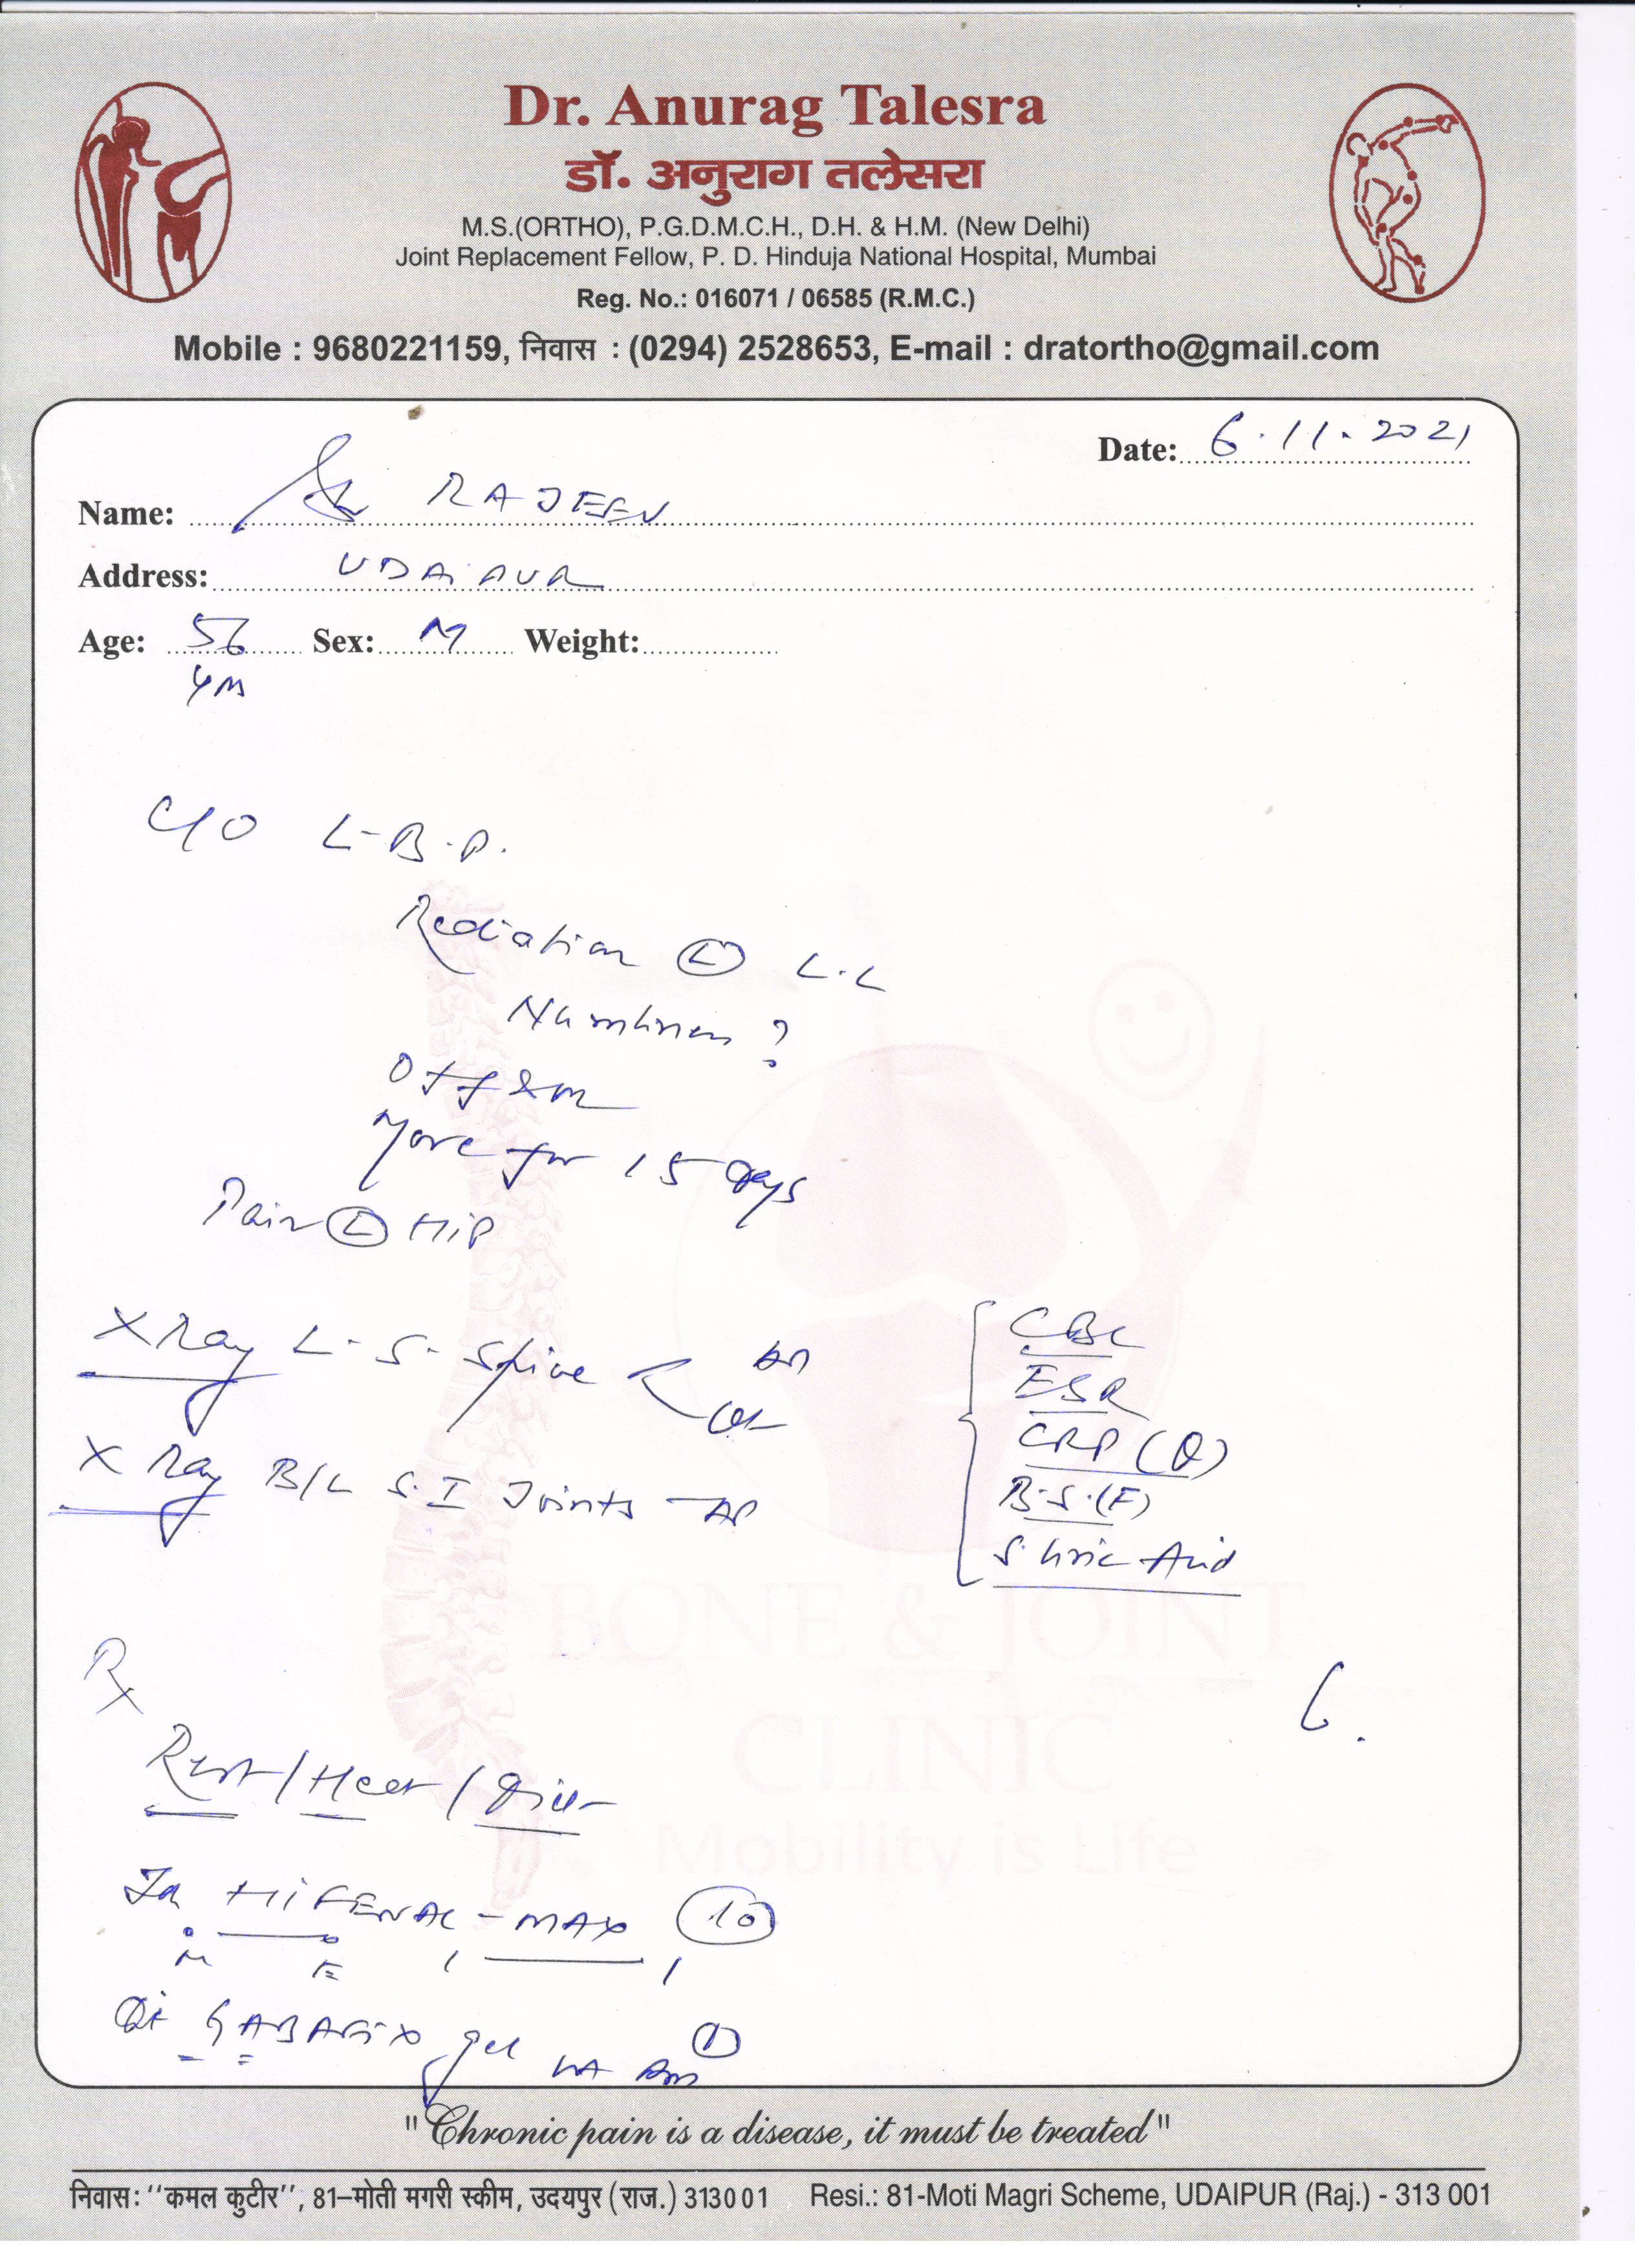 Dr. Anurag Talesra
डॉ. अनुराग तलेसरा
M.S.(ORTHO), P.G.D.M.C.H., D.H. & H.M. (New Delhi)
Joint Replacement Fellow, P. D. Hinduja National Hospital, Mumbai
Reg. No.: 016071 / 06585 (R.M.C.)
Mobile : 9680221159, निवास : (0294) 2528653, E-mail : dratortho@gmail.com
Date: 6.11.2021
Name: RAJEEV
Address: UDAIPUR
Age: 56 Sex: M Weight:
C/O L-B.P.
Radiation (L) L.L
Numbness ?
More for 15 days
Pain (L) HIP
X Ray L-S-Spine AP
X Ray B/L S.I Joints - AP
CBC
ESR
CRP (Q)
B.S.(F)
S. Uric Acid
Rx
Rest / Heat /
HIFENAC-MAX (10)
M E
GABAFIX gel (1)
BONE & JOINT
CLINIC
Mobility is Life
"Chronic pain is a disease, it must be treated"
निवास: ''कमल कुटीर'', 81–मोती मगरी स्कीम, उदयपुर (राज.) 313001 Resi.: 81-Moti Magri Scheme, UDAIPUR (Raj.) - 313 001